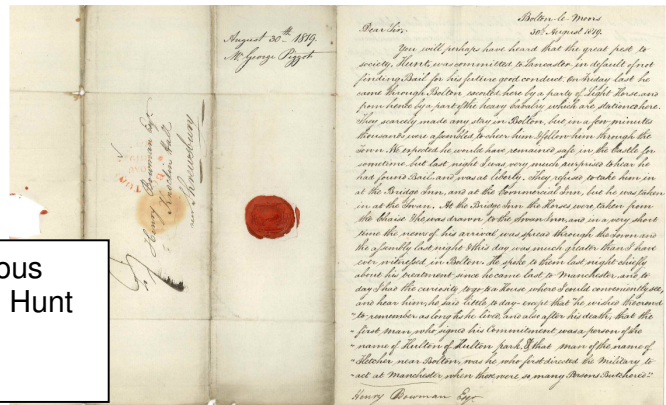 August 30th 1819
Mr George Piggot
Henry Bowman Esqr
near Shrewsbury
ous
Hunt
Bolton-le-Moors
30th August 1819.
Dear Sir,
You will perhaps have heard that the great pest to
society, Hunt, was committed to Lancaster, in default of not
finding Bail for his future good conduct. On Friday last he
came through Bolton escorted here by a party of Light Horse, and
from hence by a part of the heavy cavalry which are stationed here.
They scarcely made any stay in Bolton, but in a few minutes
thousands were assembled to cheer him & follow him through the
Town. We expected he would have remained safe in the Castle for
sometime, but last night I was very much surprised to hear he
had found Bail, and was at liberty. They refused to take him in
at the Bridge Inn, and at the Commercial Inn, but he was taken
in at the Swan. At the Bridge Inn the Horses were taken from
the Chaise & he was drawn to the Swan Inn, and in a very short
time the news of his arrival was spread through the Town and
the assembly last night & this day was much greater than I have
ever witnessed in Bolton. He spoke to them last night chiefly
about his treatment since he came last to Manchester, and to
day I had the curiosity to go to a House where I could conveniently see,
and hear him, he said little to-day except that "he wished the crowd
"to remember as long as he lived, and also after his death, that the
"first man, who signed his Commitment was a person of the
"name of Hulton of Hulton park, & that man of the name of
"Fletcher, near Bolton, was he who first directed the Military to
"act at Manchester, when there were so many Persons Butchered."
Henry Bowman Esqr